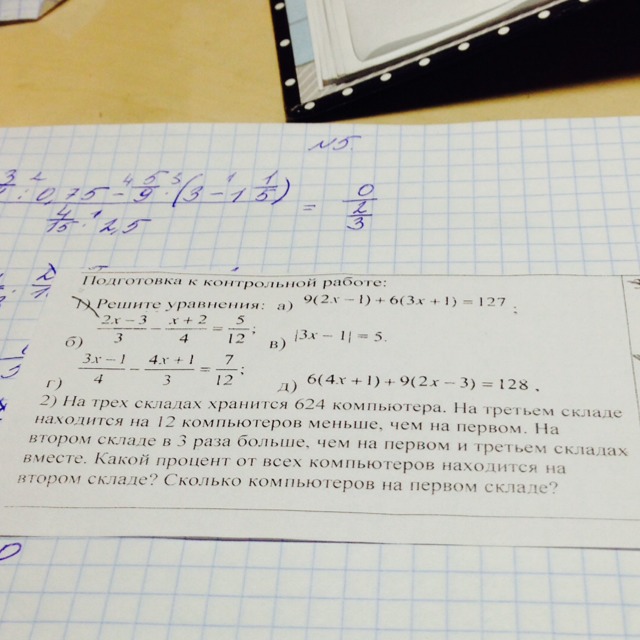 №5.
: 0,75 - 5/9 · (3 - 1 1/5)
4/15 · 2,5
= 0
2/3
Подготовка к контрольной работе:
1) Решите уравнения: а) 9(2x − 1) + 6(3x + 1) = 127 ;
б) (2x − 3)/3 − (x + 2)/4 = 5/12; в) |3x − 1| = 5.
г) (3x − 1)/4 − (4x + 1)/3 = 7/12; д) 6(4x + 1) + 9(2x − 3) = 128 .
2) На трех складах хранится 624 компьютера. На третьем складе
находится на 12 компьютеров меньше, чем на первом. На
втором складе в 3 раза больше, чем на первом и третьем складах
вместе. Какой процент от всех компьютеров находится на
втором складе? Сколько компьютеров на первом складе?